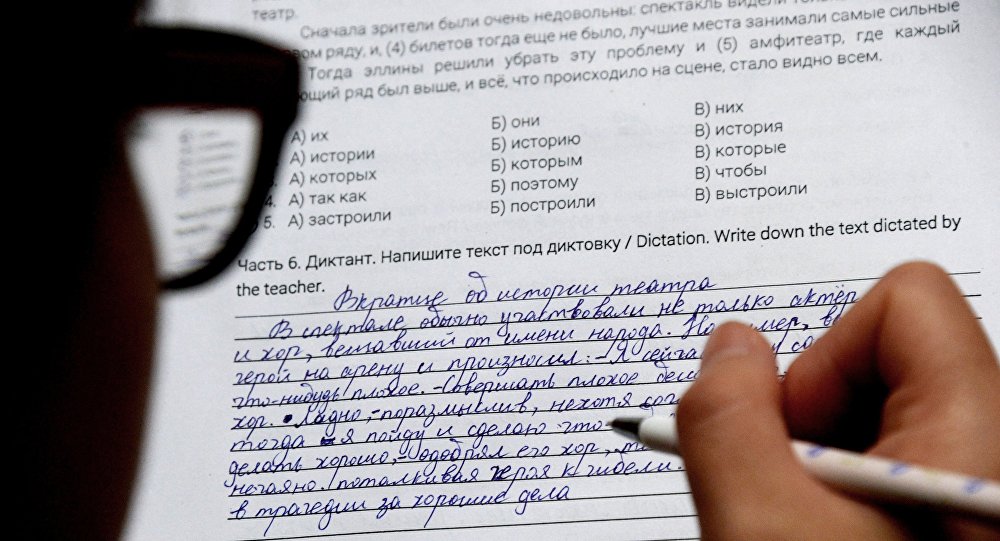 театр.
Сначала зрители были очень недовольны: спектакль видели
ряду, и, (4) билетов тогда еще не было, лучшие места занимали самые сильные
Тогда эллины решили убрать эту проблему и (5) амфитеатр, где каждый
ряд был выше, и всё, что происходило на сцене, стало видно всем.
А) их Б) они В) них
А) истории Б) историю В) история
А) которых Б) которым В) которые
4. А) так как Б) поэтому В) чтобы
5. А) застроили Б) построили В) выстроили
Часть 6. Диктант. Напишите текст под диктовку / Dictation. Write down the text dictated by
the teacher.
Вкратце об истории театра
В спектале обычно участвовали не только актёр
и хор, вещавший от имени народа.
герой на арену и произносил: - Я
что-нибудь плохое. - Совершать плохое
хор. Ладно, - поразмыслив, нехотя
тогда я пойду и сделаю что-
делать хорошо, - одобрял его хор,
нечаянно поталкивая героя к гибели.
в трагедии за хорошие дела